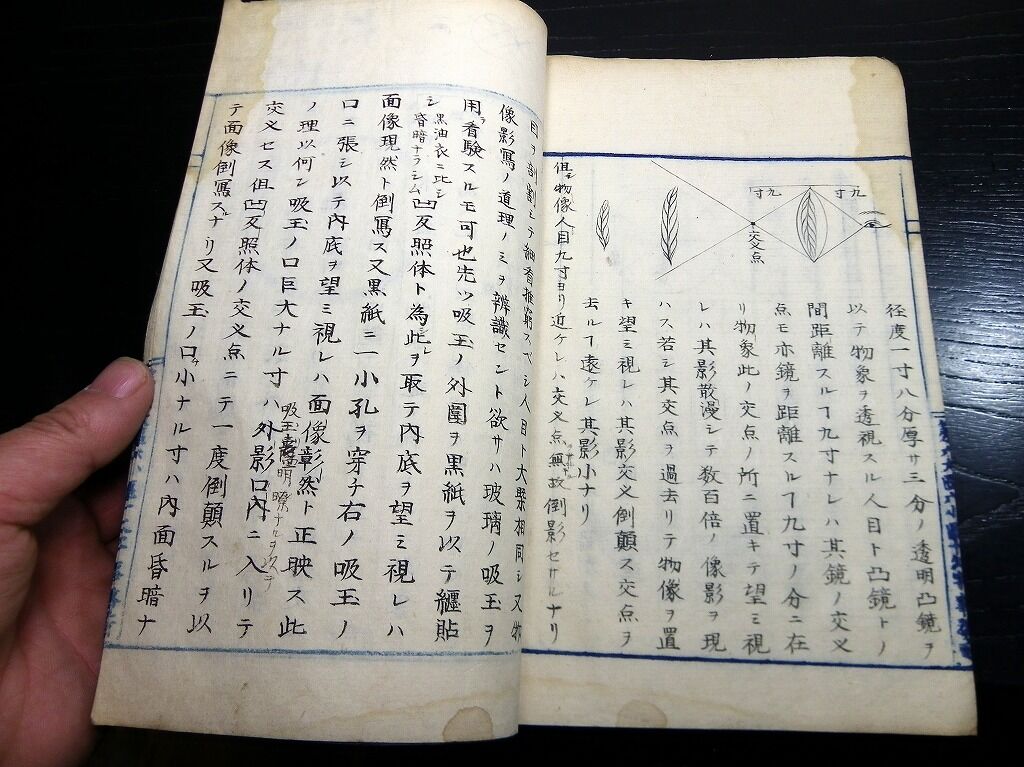 九寸
九寸
交义点
径度一寸八分厚サ三分ノ透明凸鏡ヲ
以テ物象ヲ透視スル人目ト凸鏡トノ
間距離スルヿ九寸ナレハ其鏡ノ交义
点モ亦鏡ヲ距離スルヿ九寸ノ分ニ在
リ物象此ノ交点ノ所ニ置キテ望ミ視
レハ其影散漫シテ数百倍ノ像影ヲ現
ハス若シ其交点ヲ過去リテ物像ヲ置
キ望ミ視レハ其影交义倒顛ス交点ヲ
去ルヿ遠ケレ其影小ナリ
但シ物像人目九寸ヨリ近ケレハ交义点無故倒影セサルナリ
目ヲ剖割シテ細看推窮スベシ人目ト大槩相同シ又
像影寫ノ道理ノミヲ辨識セント欲サハ玻璃ノ吸玉ヲ
用ヲ看験スルモ可也先ツ吸玉ノ外圍ヲ黒紙ヲ以テ纏貼
シ黒油衣ニ比シ昏暗ナラシム凹反照体ト為此レヲ取テ内底ヲ望ミ視レハ
面像現然ト倒寫ス又黒紙ニ一小孔ヲ穿チ右ノ吸玉ノ
口ニ張シ以テ内底ヲ望ミ視レハ面像影彰然ト正映ス此
ノ理以何ン吸玉ノ口巨大ナル寸ハ外影口内ニ入リテ
吸玉裏明瞭ナルヲ以テ
交义セス但凹反照体ノ交义点ニテ一度倒顛スルヲ以
テ面像倒寫スルナリ又吸玉ノ口ヲ小ナル寸ハ内面昏暗ナ